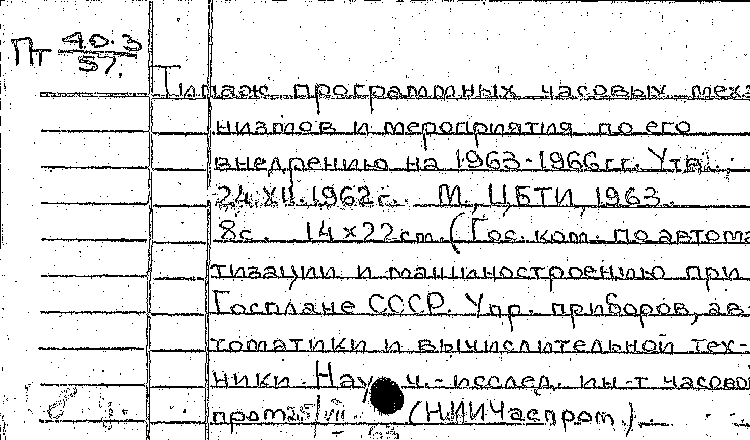 Пт 40.3
57.
Типаж программных часовых меха
низмов и мероприятия по его
внедрению на 1963-1966гг. Утв.
24.XII.1962г. М., ЦБТИ, 1963.
8с. 14x22см. (Гос. ком. по автома
тизации и машиностроению при
Госплане СССР. Упр. приборов, ав
томатики и вычислительной тех-
ники. Науч.-исслед. ин-т часовой
пром. (НИИЧаспром.)
25/VII
63